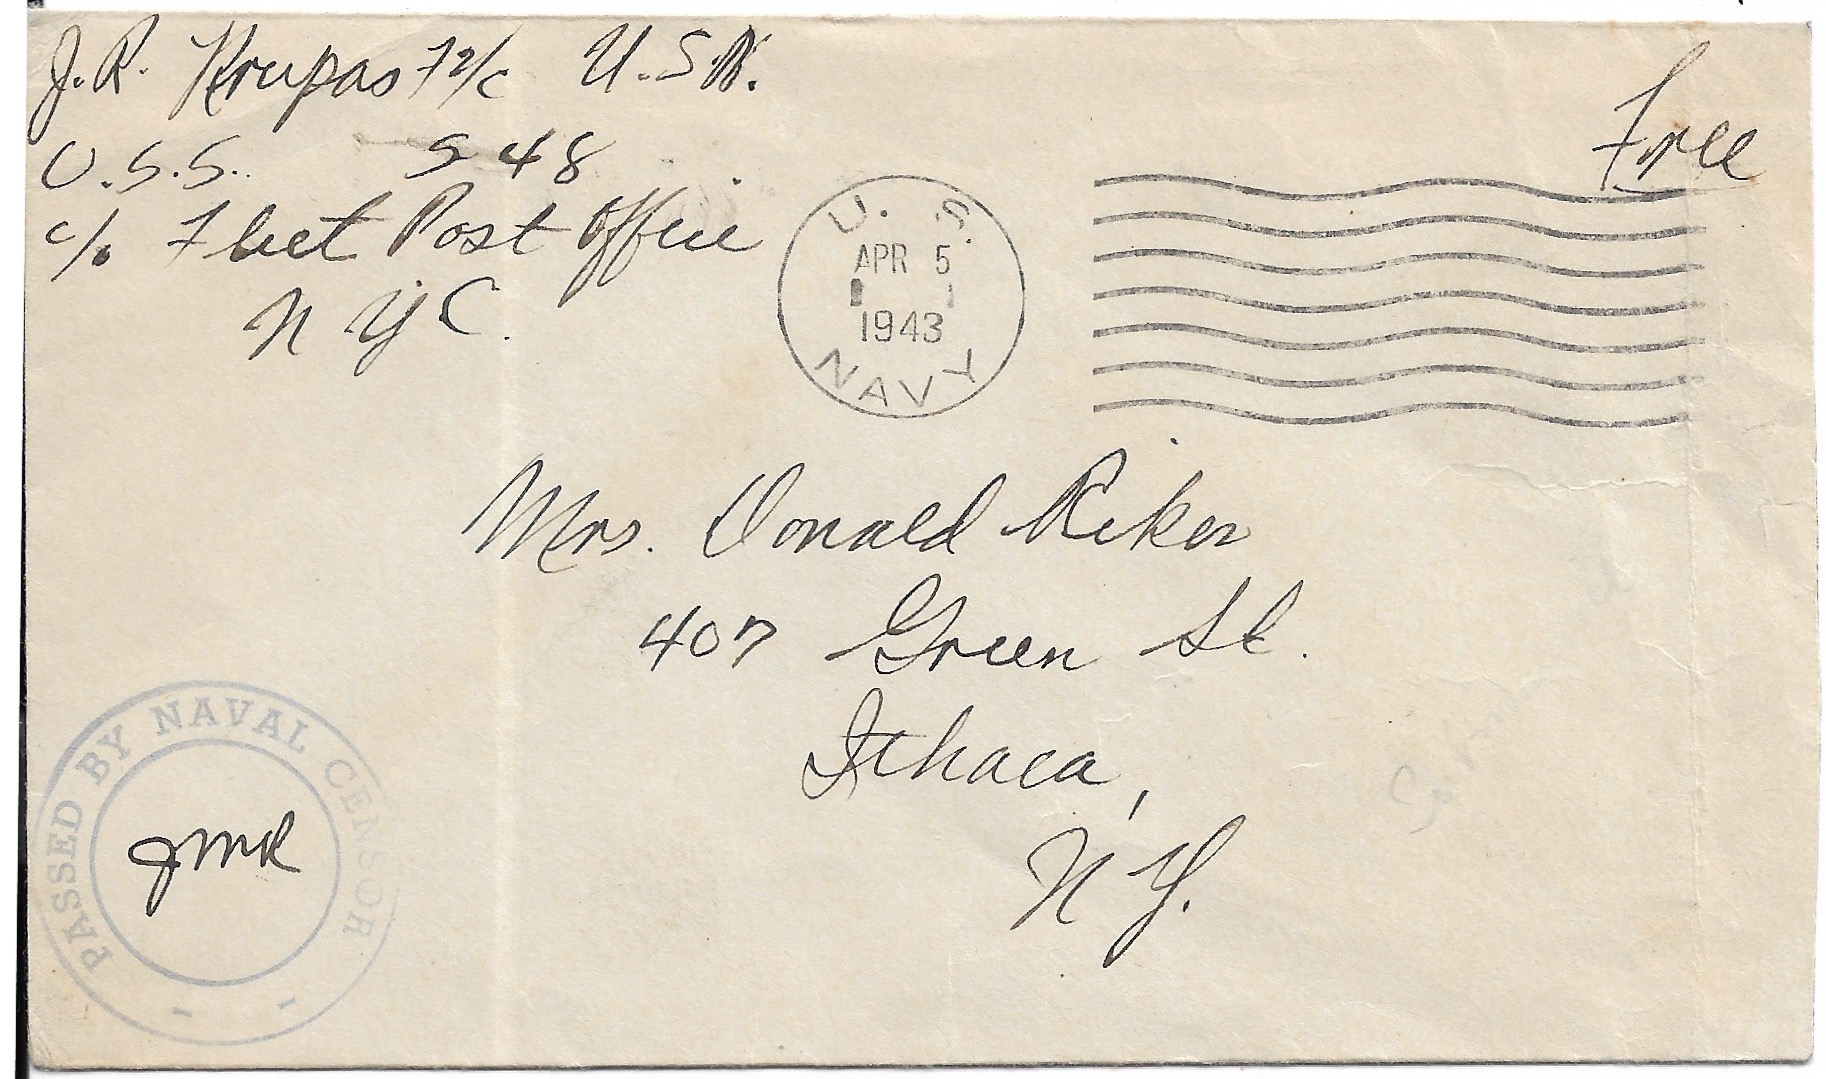 J. R. Krupas F2/c U.S.N.
U.S.S. S 48
c/o Fleet Post Office
N Y C.
Free
U. S.
APR 5
1943
NAVY
Mrs. Donald Riker
407 Green St.
Ithaca,
N Y.
PASSED BY NAVAL CENSOR
JMR